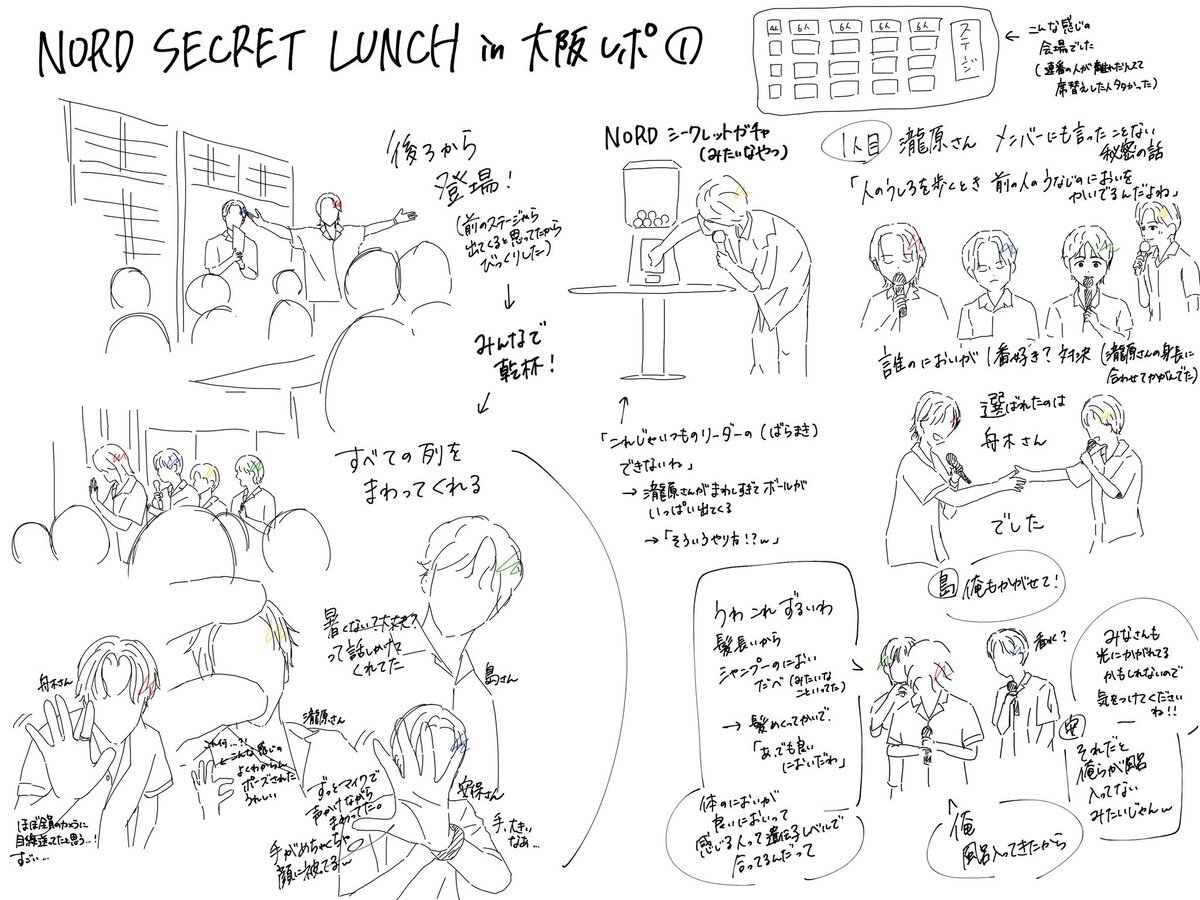 NORD SECRET LUNCH in 大阪レポ①
4人 6人 6人 6人 6人
ステージ
← こんな感じの
会場でした
(連番の人が離れだしてて
席替えした人多かった)
後ろから
登場!
(前のステージから
出てくると思ってたから
びっくりした)
↓
みんなで
乾杯!
すべての列を
まわってくれる
暑くない?大丈夫?
って話しかけて
くれてた
島さん
舟木さん
ほぼ全員のカメラに
目線送ってたと思う…!
すごい…
瀧原さん
これ何…?!
←こんな感じの
よくわからん
ポーズされた
うれしい
ずっとマイクで
声かけながら
まわってた。
手がめちゃくちゃ
顔に被ってるw
安保さん
手、大きい
なあ…
NORD シークレットガチャ
(みたいなやつ)
↑
「これじゃいつものリーダーの(ばらまき)
できないね」
→ 瀧原さんがまわしすぎてボールが
いっぱい出てくる
→「そういうやり方!?w」
1人目 瀧原さん メンバーにも言ったことない
秘密の話
「人のうしろを歩くとき 前の人のうなじのにおいを
かいでるんだよね」
誰のにおいが1番好き?対決(瀧原さんの身長に
合わせてかがんでた)
選ばれたのは
舟木さん
でした
島 俺もかがせて!
うわ これ ずるいわ
髪長いから
シャンプーのにおい
だべ(みたいな
こといってた)
→ 髪めくってかいで、
「あ、でも良い
においだわ」
体のにおいが
良いにおいって
感じる人って遺伝子レベルで
合ってるんだって
香水?
俺
風呂入ってきたから
みなさんも
光にかがれてる
かもしれないので
気をつけてください
ね!!
安 それだと
俺らが風呂
入ってない
みたいじゃんw